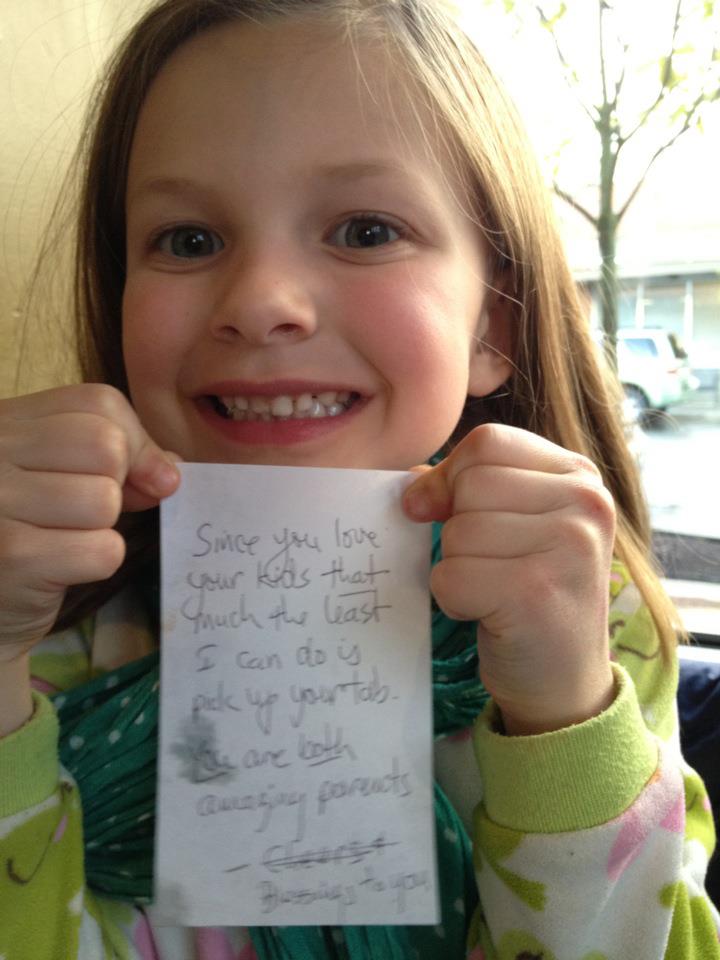 Since you love
your kids that
much the least
I can do is
pick up your tab.
You are both
amazing parents
- Cheers +
Blessings to you